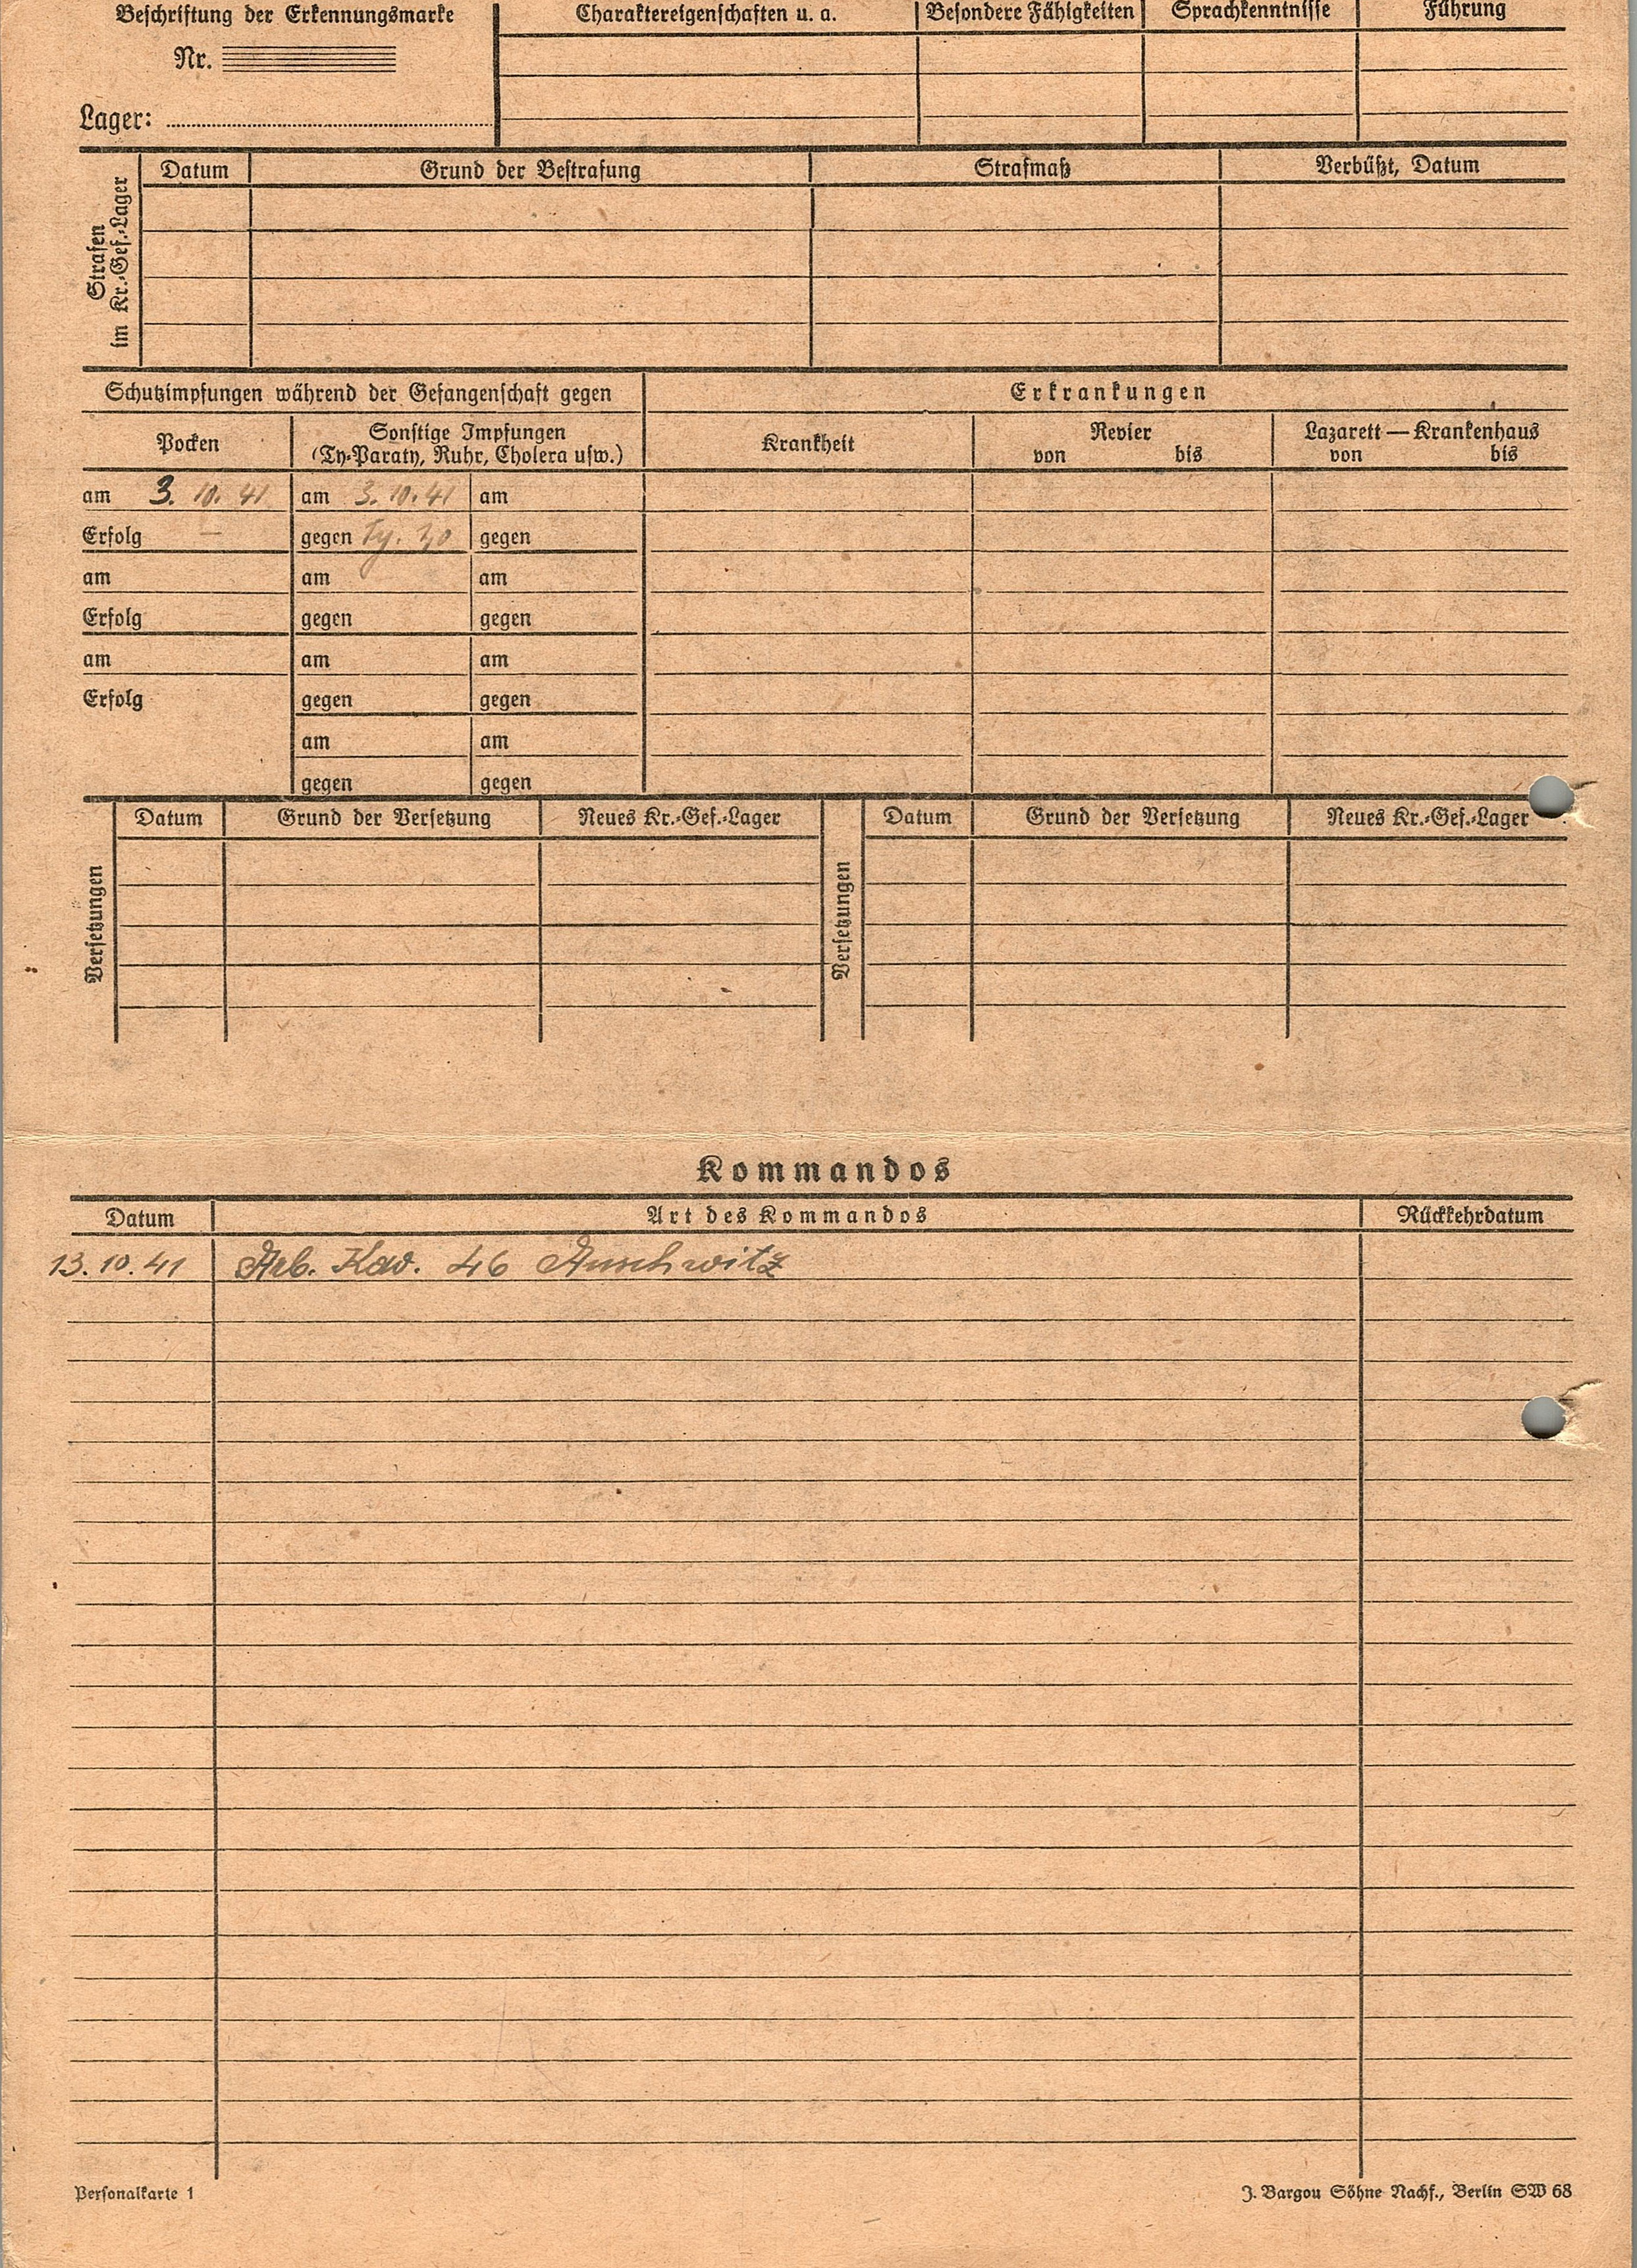 Beschriftung der Erkennungsmarke
Nr.
Lager:
Charaktereigenschaften u. a. Besondere Fähigkeiten Sprachkenntnisse Führung
Strafen
im Kr.-Gef.-Lager
Datum Grund der Bestrafung Strafmaß Verbüßt, Datum
Schutzimpfungen während der Gefangenschaft gegen Erkrankungen
Pocken
Sonstige Impfungen
(Ty-Paraty, Ruhr, Cholera usw.)
Krankheit
Revier
von bis
Lazarett — Krankenhaus
von bis
am 3. 10. 41 am 3. 10. 41 am
Erfolg – gegen Ty. gegen
am am am
Erfolg gegen gegen
am am am
Erfolg gegen gegen
am am
gegen gegen
Versetzungen
Datum Grund der Versetzung Neues Kr.-Gef.-Lager
Versetzungen
Datum Grund der Versetzung Neues Kr.-Gef.-Lager
Kommandos
Datum Art des Kommandos Rückkehrdatum
13. 10. 41 Arb. Kdo. 46 Auschwitz
Personalkarte 1
J. Bargou Söhne Nachf., Berlin SW 68